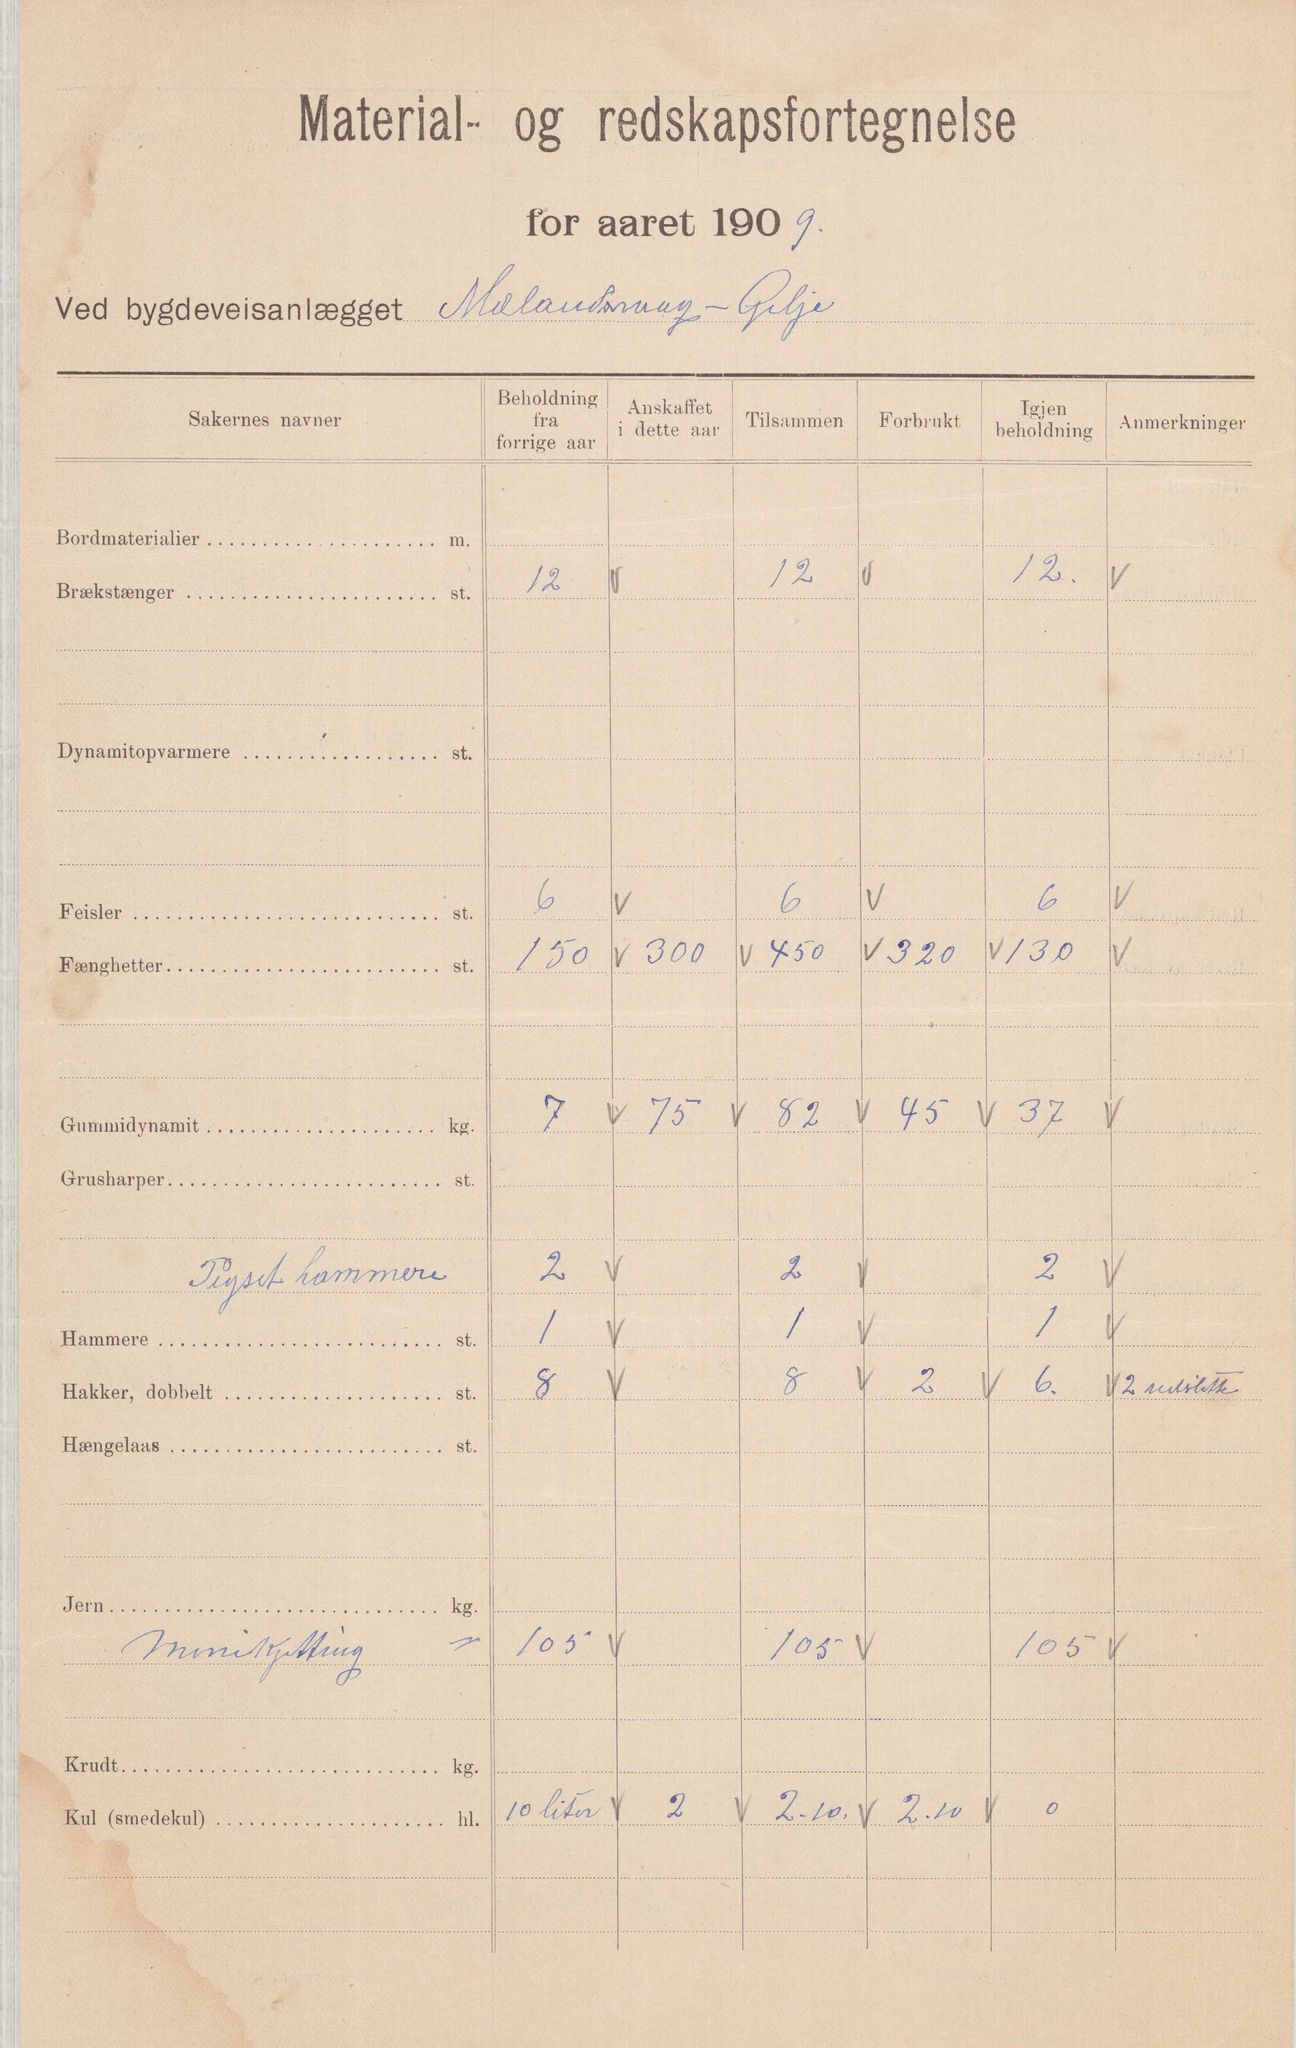 Material- og redskapsfortegnelse
for aaret 1909.
Ved bygdeveisanlægget Mælandsvaag - Gilje
Sakernes navner | Beholdning fra forrige aar | Anskaffet i dette aar | Tilsammen | Forbrukt | Igjen beholdning | Anmerkninger
Bordmaterialier .................... m.
Brækstænger .................... st. 12 V 12 V 12. V
Dynamitopvarmere .................. st.
Feisler ............................ st. 6 V 6 V 6 V
Fænghetter......................... st. 150 V 300 V 450 V 320 V 130 V
Gummidynamit ..................... kg. 7 V 75 V 82 V 45 V 37 V
Grusharper......................... st.
hammere 2 V 2 V 2 V
Hammere .......................... st. 1 V 1 V 1 V
Hakker, dobbelt .................... st. 8 V 8 V 2 V 6. V 2 udslitte
Hængelaas ......................... st.
Jern.............................. kg.
Minekjetting " 105 V 105 V 105 V
Krudt............................. kg.
Kul (smedekul) ..................... hl. 10 liter V 2 V 2.10. V 2.10 V 0